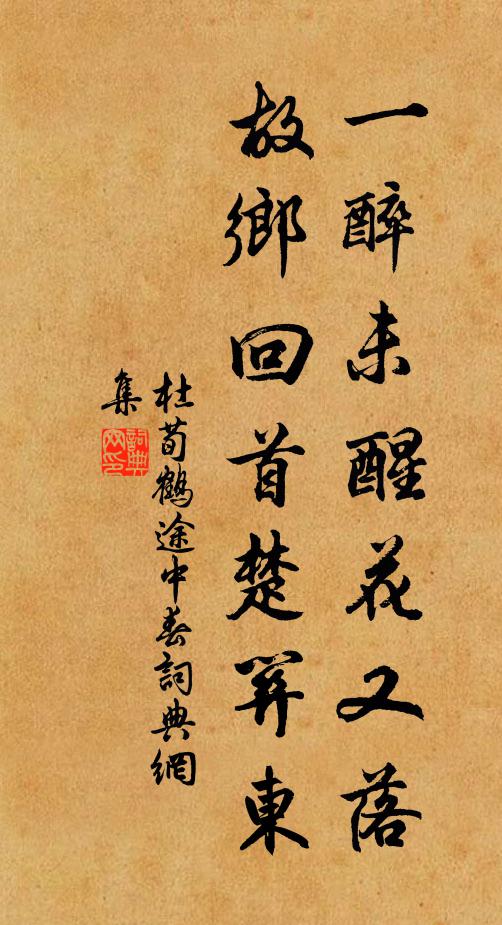 一醉未醒花又落
故鄉回首楚關東
杜荀鶴途中春詞典網
集
詞典
网印